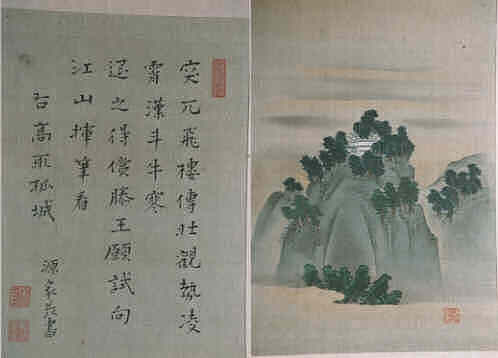 突兀飛樓傳壯觀勢凌
霄漢斗牛寒
之得償滕王願試向
江山揮筆看
右高孤城
源家書